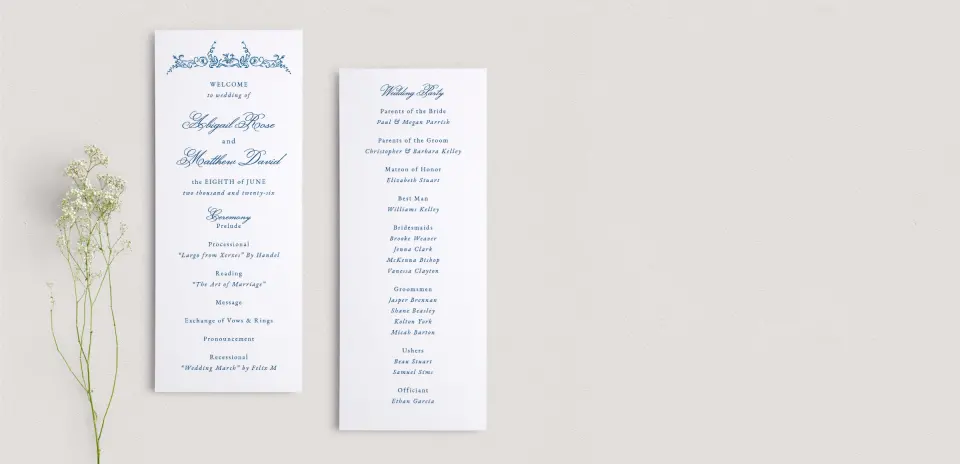 WELCOME
to wedding of
Abigail Rose
and
Matthew David
the EIGHTH of JUNE
two thousand and twenty-six
Ceremony
Prelude
Processional
“Largo from Xerxes” By Handel
Reading
“The Art of Marriage”
Message
Exchange of Vows & Rings
Pronouncement
Recessional
“Wedding March” by Felix M
Wedding Party
Parents of the Bride
Paul & Megan Parrish
Parents of the Groom
Christopher & Barbara Kelley
Matron of Honor
Elizabeth Stuart
Best Man
Williams Kelley
Bridesmaids
Brooke Weaver
Jenna Clark
McKenna Bishop
Vanessa Clayton
Groomsmen
Jasper Brennan
Shane Beasley
Kolton York
Micah Barton
Ushers
Beau Stuart
Samuel Sims
Officiant
Ethan Garcia